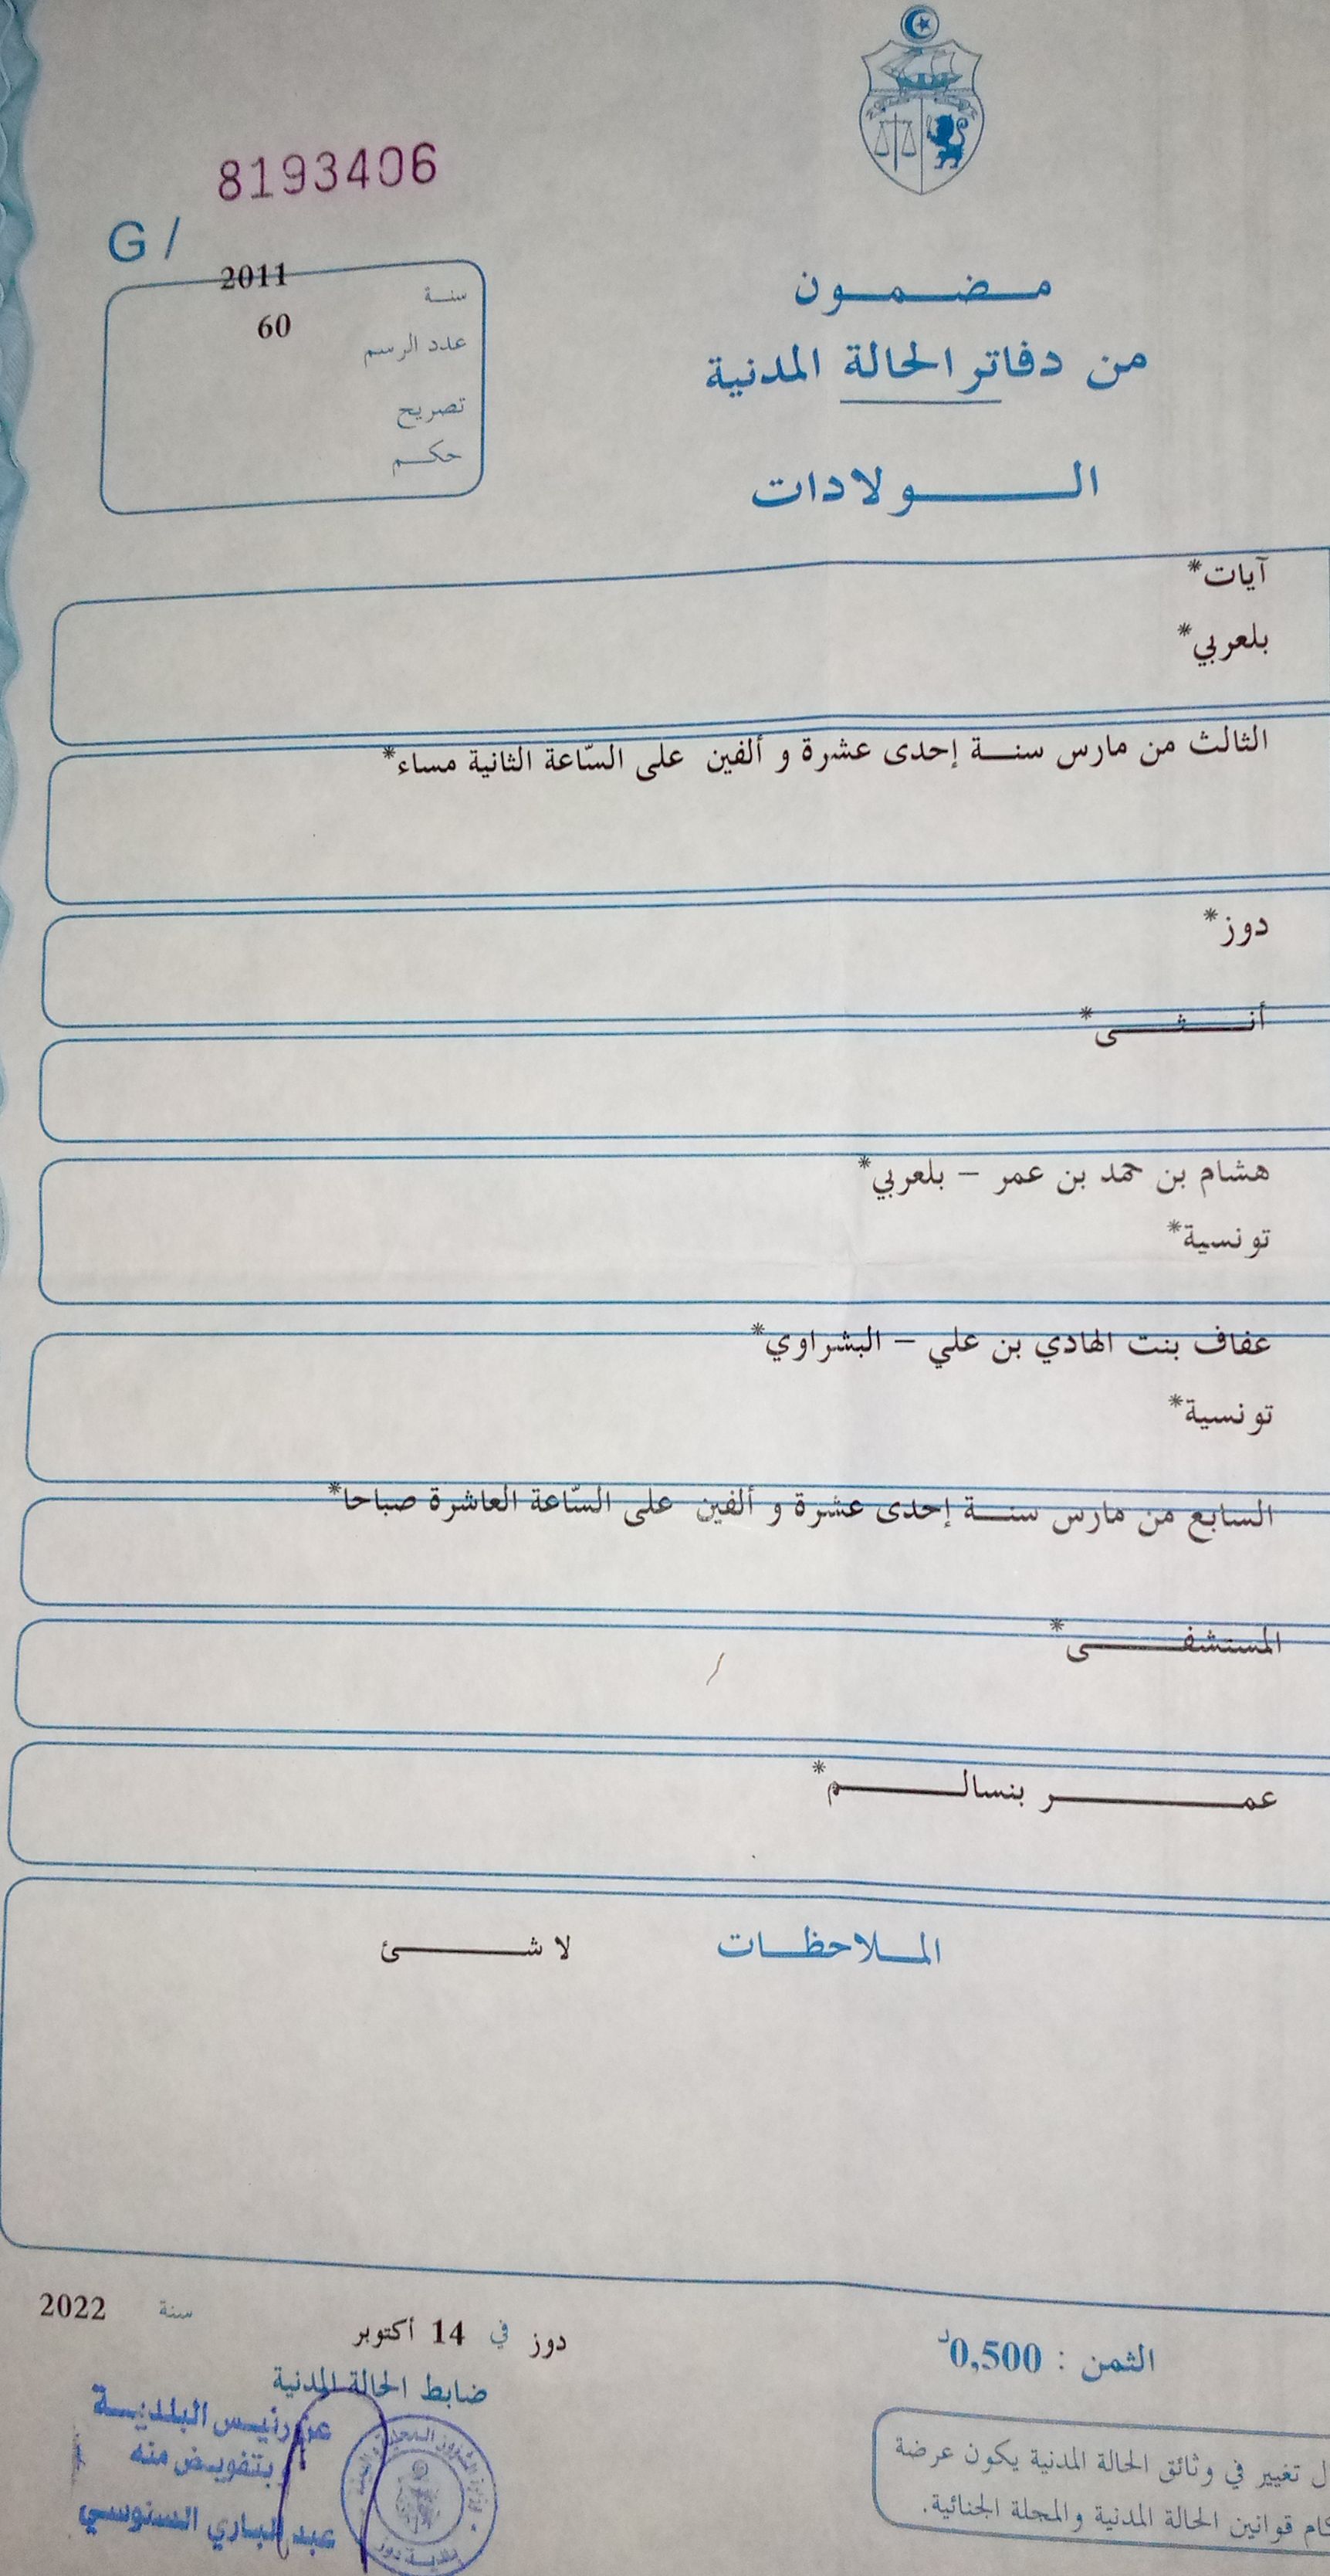 8193406
G /
2011
سنة
60
عدد الرسم
تصريح
حكم
مضمون
من دفاتر الحالة المدنية
الولادات
آيات*
بلعربي*
الثالث من مارس سنة إحدى عشرة و ألفين على السّاعة الثانية مساء*
دوز*
أنثى*
هشام بن حمد بن عمر – بلعربي*
تونسية*
عفاف بنت الهادي بن علي – البشراوي*
تونسية*
السابع من مارس سنة إحدى عشرة و ألفين على السّاعة العاشرة صباحا*
المستشفى*
عمر بنسالم*
الملاحظات لا شئ
دوز في 14 أكتوبر سنة 2022
الثمن : 0,500د
ضابط الحالة المدنية
عن رئيس البلدية
بتفويض منه
عبد الباري السنوسي
بلدية دوز
تغيير في وثائق الحالة المدنية يكون عرضة
قوانين الحالة المدنية والمجلة الجنائية.